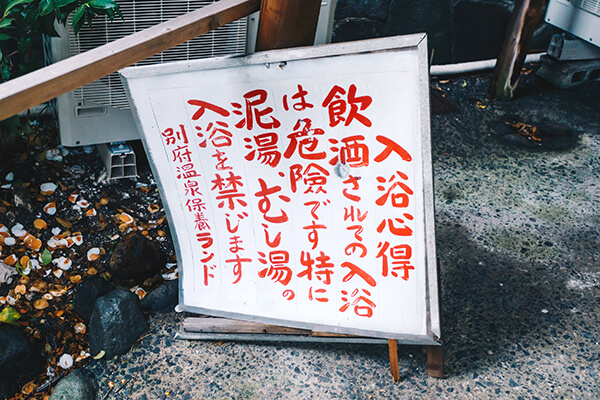 入浴心得
飲酒されての入浴
は危険です特に
泥湯、むし湯の
入浴を禁じます
別府温泉保養ランド